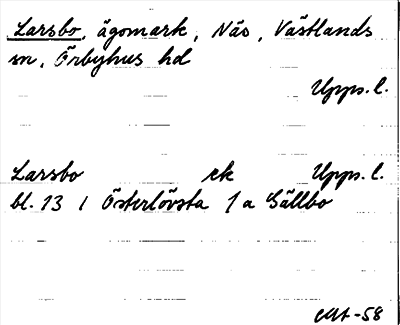 Larsbo, ägomark, Näs, Västlands
sn, Örbyhus hd
Upps. l.
Larsbo ek Upps. l.
bl. 13 / Österlövsta 1 a Gällbo
-58